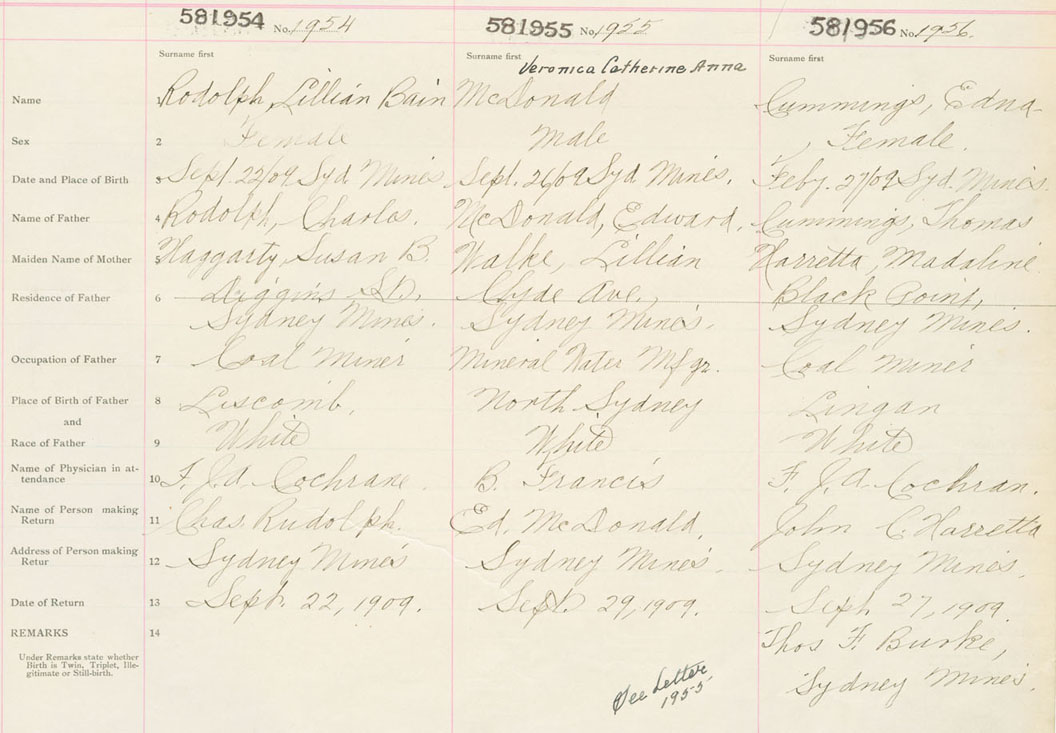 581954 No. 1954 581955 No. 1955 581956 No. 1956.
Surname first Surname first Surname first
Veronica Catherine Anna
Name 1 Rodolph, Lillian Bain McDonald Cummings, Edna
Sex 2 Female Male Female.
Date and Place of Birth 3 Sept. 22/09 Syd. Mines. Sept. 26/09 Syd. Mines. Feby. 27/09 Syd. Mines.
Name of Father 4 Rodolph, Charles. McDonald, Edward. Cummings, Thomas
Maiden Name of Mother 5 Haggarty, Susan B. Walke, Lillian Harretta, Madaline.
Residence of Father 6 Diggins St. Clyde Ave., Black Point,
Sydney Mines. Sydney Mines. Sydney Mines.
Occupation of Father 7 Coal Miner Mineral Water Mfgr. Coal Miner
Place of Birth of Father 8 Liscomb, North Sydney Lingan
and
Race of Father 9 White White White
Name of Physician in at-
tendance 10 F. J. A. Cochrane. B. Francis F. J. A. Cochran.
Name of Person making
Return 11 Chas. Rudolph. Ed. McDonald, John C Harretta
Address of Person making
Retur 12 Sydney Mines Sydney Mines. Sydney Mines.
Date of Return 13 Sept. 22, 1909. Sept. 29, 1909. Sept. 27, 1909
REMARKS 14 Thos F. Burke,
Under Remarks state whether
Birth is Twin, Triplet, Ille-
gitimate or Still-birth.
Sydney Mines.
See Letter
1955